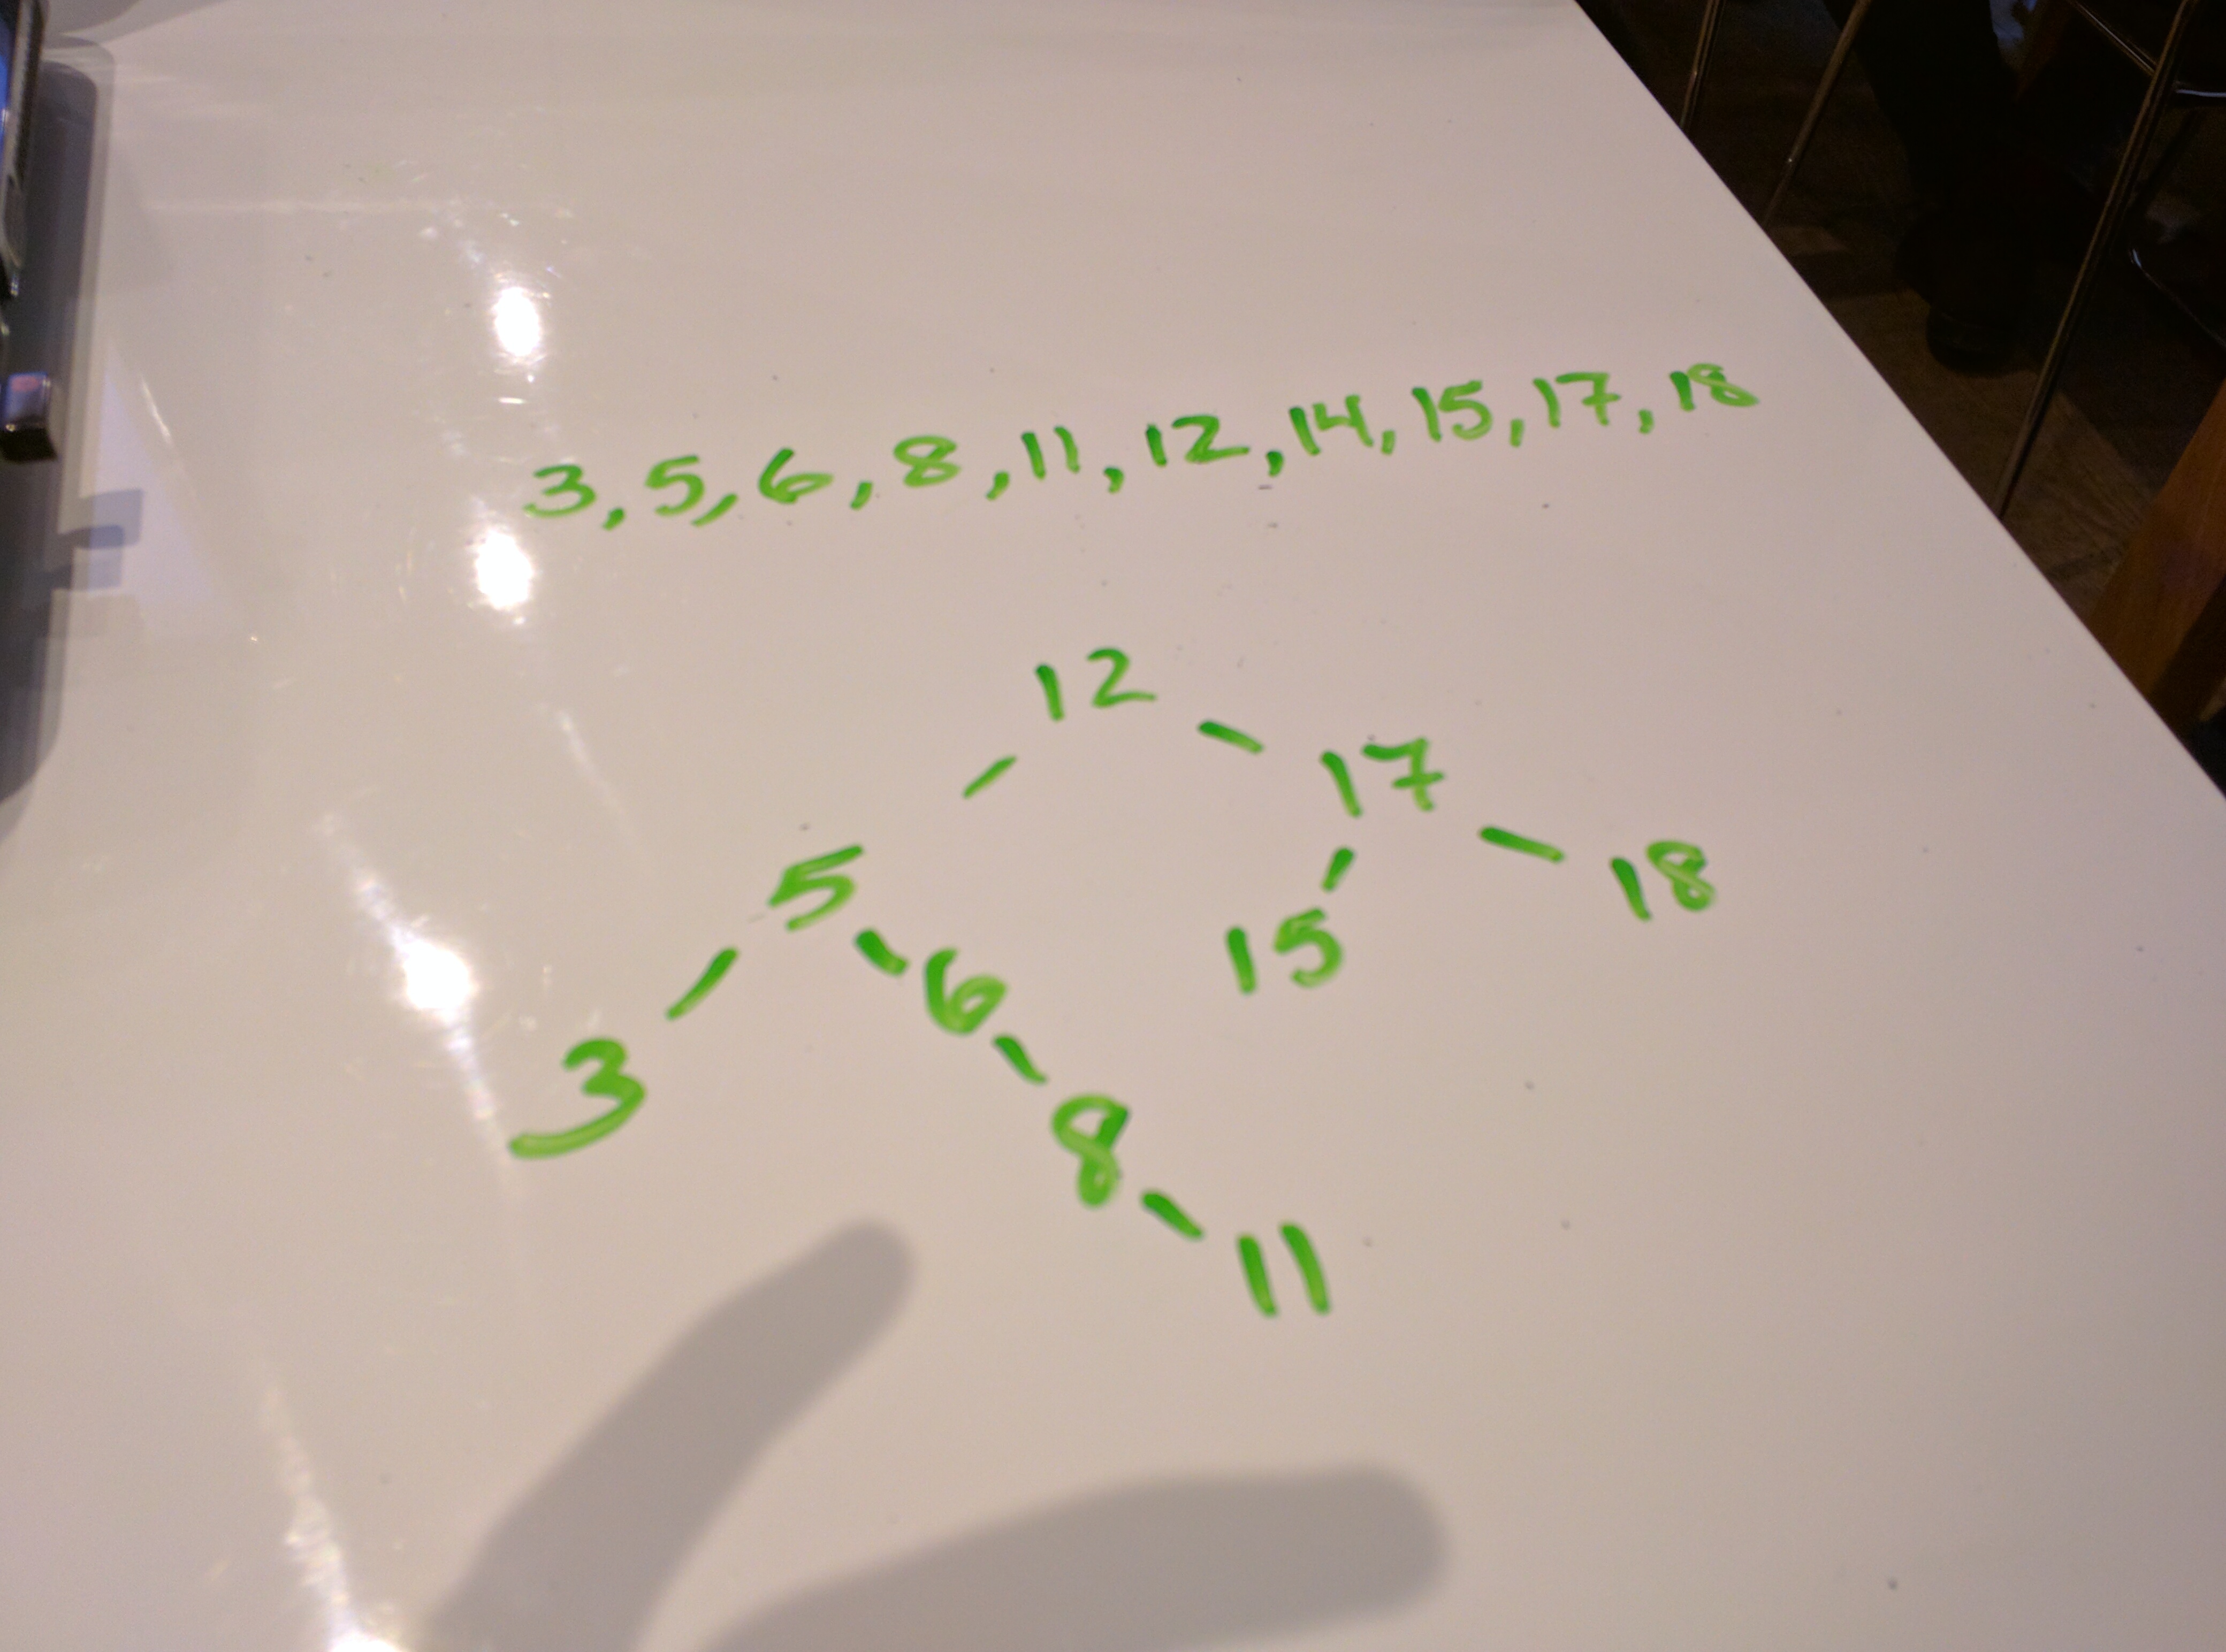 3, 5, 6, 8, 11, 12, 14, 15, 17, 18
12
17
5
18
15
6
3
8
11